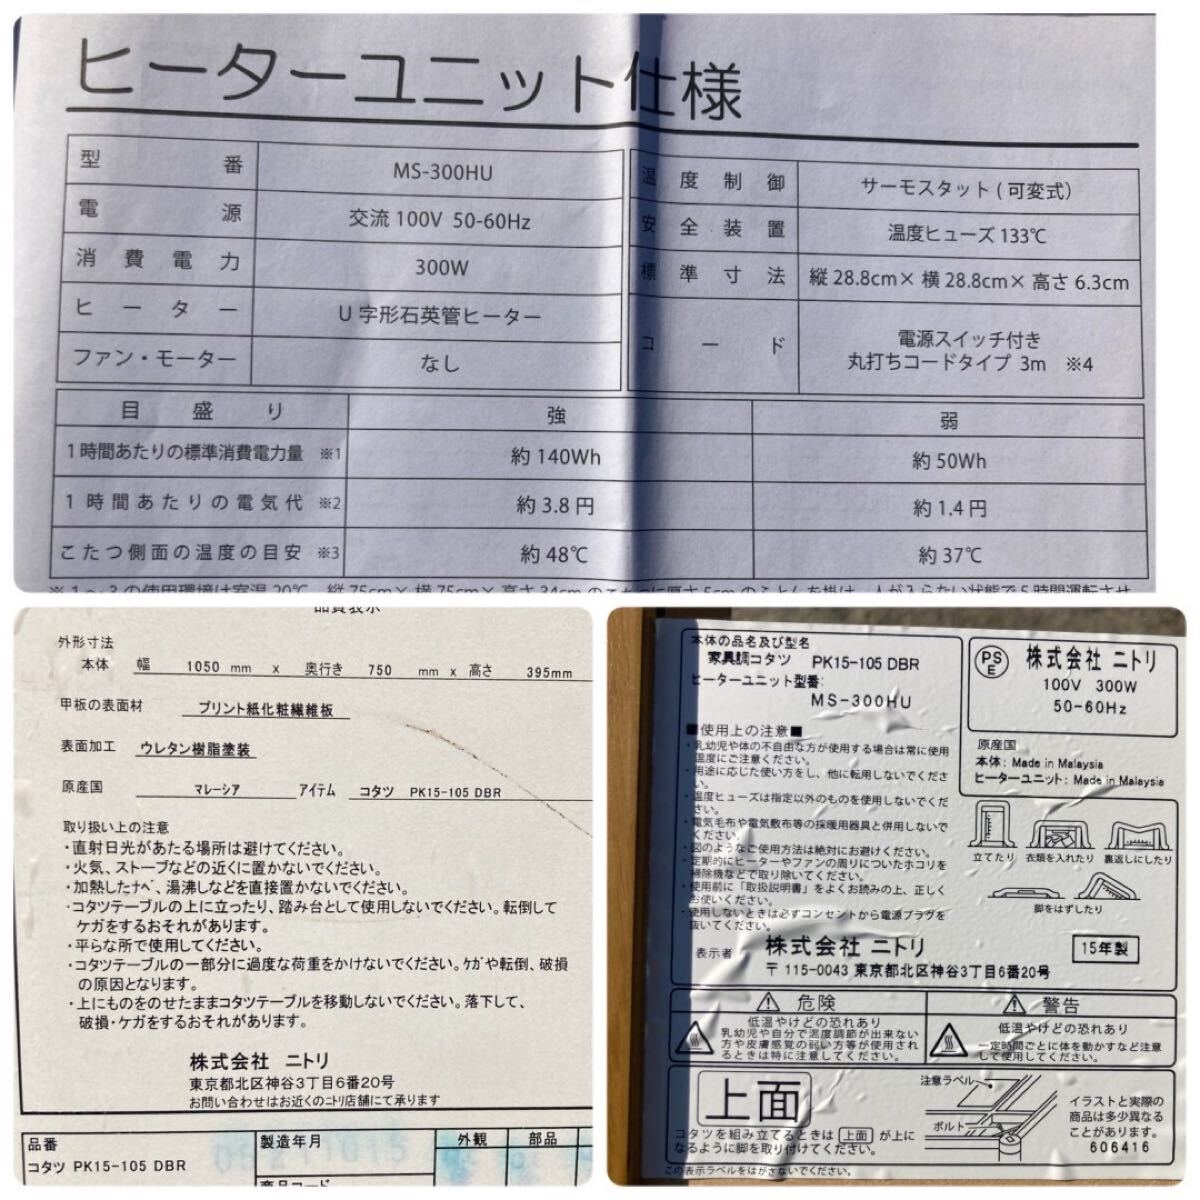 ヒーターユニット仕様
型番 MS-300HU
電源 交流100V 50-60Hz
消費電力 300W
ヒーター U字形石英管ヒーター
ファン・モーター なし
温度制御 サーモスタット(可変式)
安全装置 温度ヒューズ133℃
標準寸法 縦28.8cm×横28.8cm×高さ6.3cm
コード 電源スイッチ付き
丸打ちコードタイプ 3m ※4
目盛り 強 弱
1時間あたりの標準消費電力量 ※1 約140Wh 約50Wh
1時間あたりの電気代 ※2 約3.8円 約1.4円
こたつ側面の温度の目安 ※3 約48℃ 約37℃
※1～3の使用環境は室温20℃、縦75cm×横75cm×高さ34cmのこたつに厚さ5cmのふとんを掛け、人が入らない状態で5時間運転させ
品質表示
外形寸法
本体 幅 1050 mm x 奥行き 750 mm x 高さ 395mm
甲板の表面材 プリント紙化粧繊維板
表面加工 ウレタン樹脂塗装
原産国 マレーシア アイテム コタツ PK15-105 DBR
取り扱い上の注意
・直射日光があたる場所は避けてください。
・火気、ストーブなどの近くに置かないでください。
・加熱したナベ、湯沸しなどを直接置かないでください。
・コタツテーブルの上に立ったり、踏み台として使用しないでください。転倒して
ケガをするおそれがあります。
・平らな所で使用してください。
・コタツテーブルの一部分に過度な荷重をかけないでください。ケガや転倒、破損
の原因となります。
・上にものをのせたままコタツテーブルを移動しないでください。落下して、
破損・ケガをするおそれがあります。
株式会社 ニトリ
東京都北区神谷3丁目6番20号
お問い合わせはお近くのニトリ店舗にて承ります
品番 製造年月 外観 部品
コタツ PK15-105 DBR
商品コード
本体の品名及び型名
家具調コタツ PK15-105 DBR
ヒーターユニット型番:
MS-300HU
PSE 株式会社 ニトリ
100V 300W
50-60Hz
■使用上の注意■
・乳幼児や体の不自由な方が使用する場合は常に使用
温度にご注意ください。
・用途に応じた使い方をし、他に転用しないでくださ
い。
・温度ヒューズは指定以外のものを使用しないでくだ
さい。
・電気毛布や電気敷布等の採暖用器具と併用しないで
ください。
・図のようなご使用方法は絶対にお避けください。
・定期的にヒーターやファンの周りについたホコリを
掃除機などで取り除いてください。
・使用前に「取扱説明書」をよくお読みの上、正しく
お使いください。
・使用しないときは必ずコンセントから電源プラグを
抜いてください。
原産国
本体: Made in Malaysia
ヒーターユニット: Made in Malaysia
立てたり 衣類を入れたり 裏返しにしたり
脚をはずしたり
表示者 株式会社 ニトリ 15年製
〒115-0043 東京都北区神谷3丁目6番20号
⚠ 危険
低温やけどの恐れあり
乳幼児や自分で温度調節が出来ない
方や皮膚感覚の弱い方等が使用され
るときは特に注意してください。
⚠ 警告
低温やけどの恐れあり
一定時間ごとに体を動かすなど注意
して使用してください。
上面
コタツを組み立てるときは 上面 が上に
なるように脚を取り付けてください。
注意ラベル
ボルト
イラストと実際の
商品は多少異なる
ことがあります。
606416
この表示ラベルをはがさないでください。